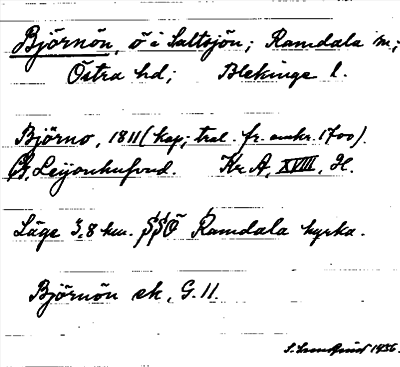 Björnön, ö i Saltsjön; Ramdala sn;
Östra hd; Blekinge l.
Björno, 1811 (kap; tral. fr. omkr. 1700).
G. Leijonhufvud. Kr. A. XVIII, H.
Läge 3,8 km. SSÖ Ramdala kyrka.
Björnön ek, G. 11.
S. Lundqvist 1936.